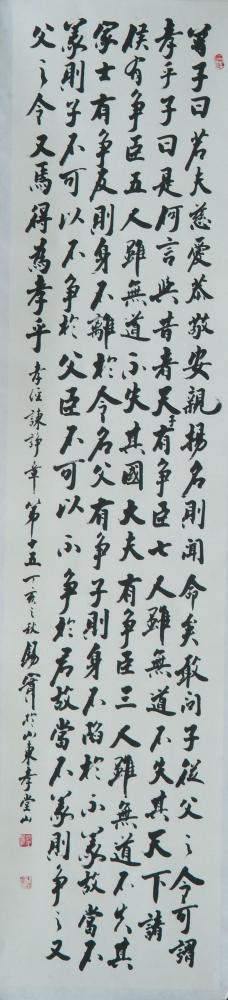 曾子曰若夫慈愛恭敬安親揚名則聞命矣敢問子從父之令可謂
孝乎子曰是何言與昔者天有争臣七人雖無道不失其天下諸
侯有争臣五人雖無道不失其國大夫有争臣三人雖無道不失其
家士有争友則身不離於令名父有争子則身不陷於不義故當不
義則子不可以不争於父臣不可以不争於君故當不義則争之又
父之令又焉得為孝乎 孝經諫諍章第十五丁亥之秋錫寧於山東孝堂山